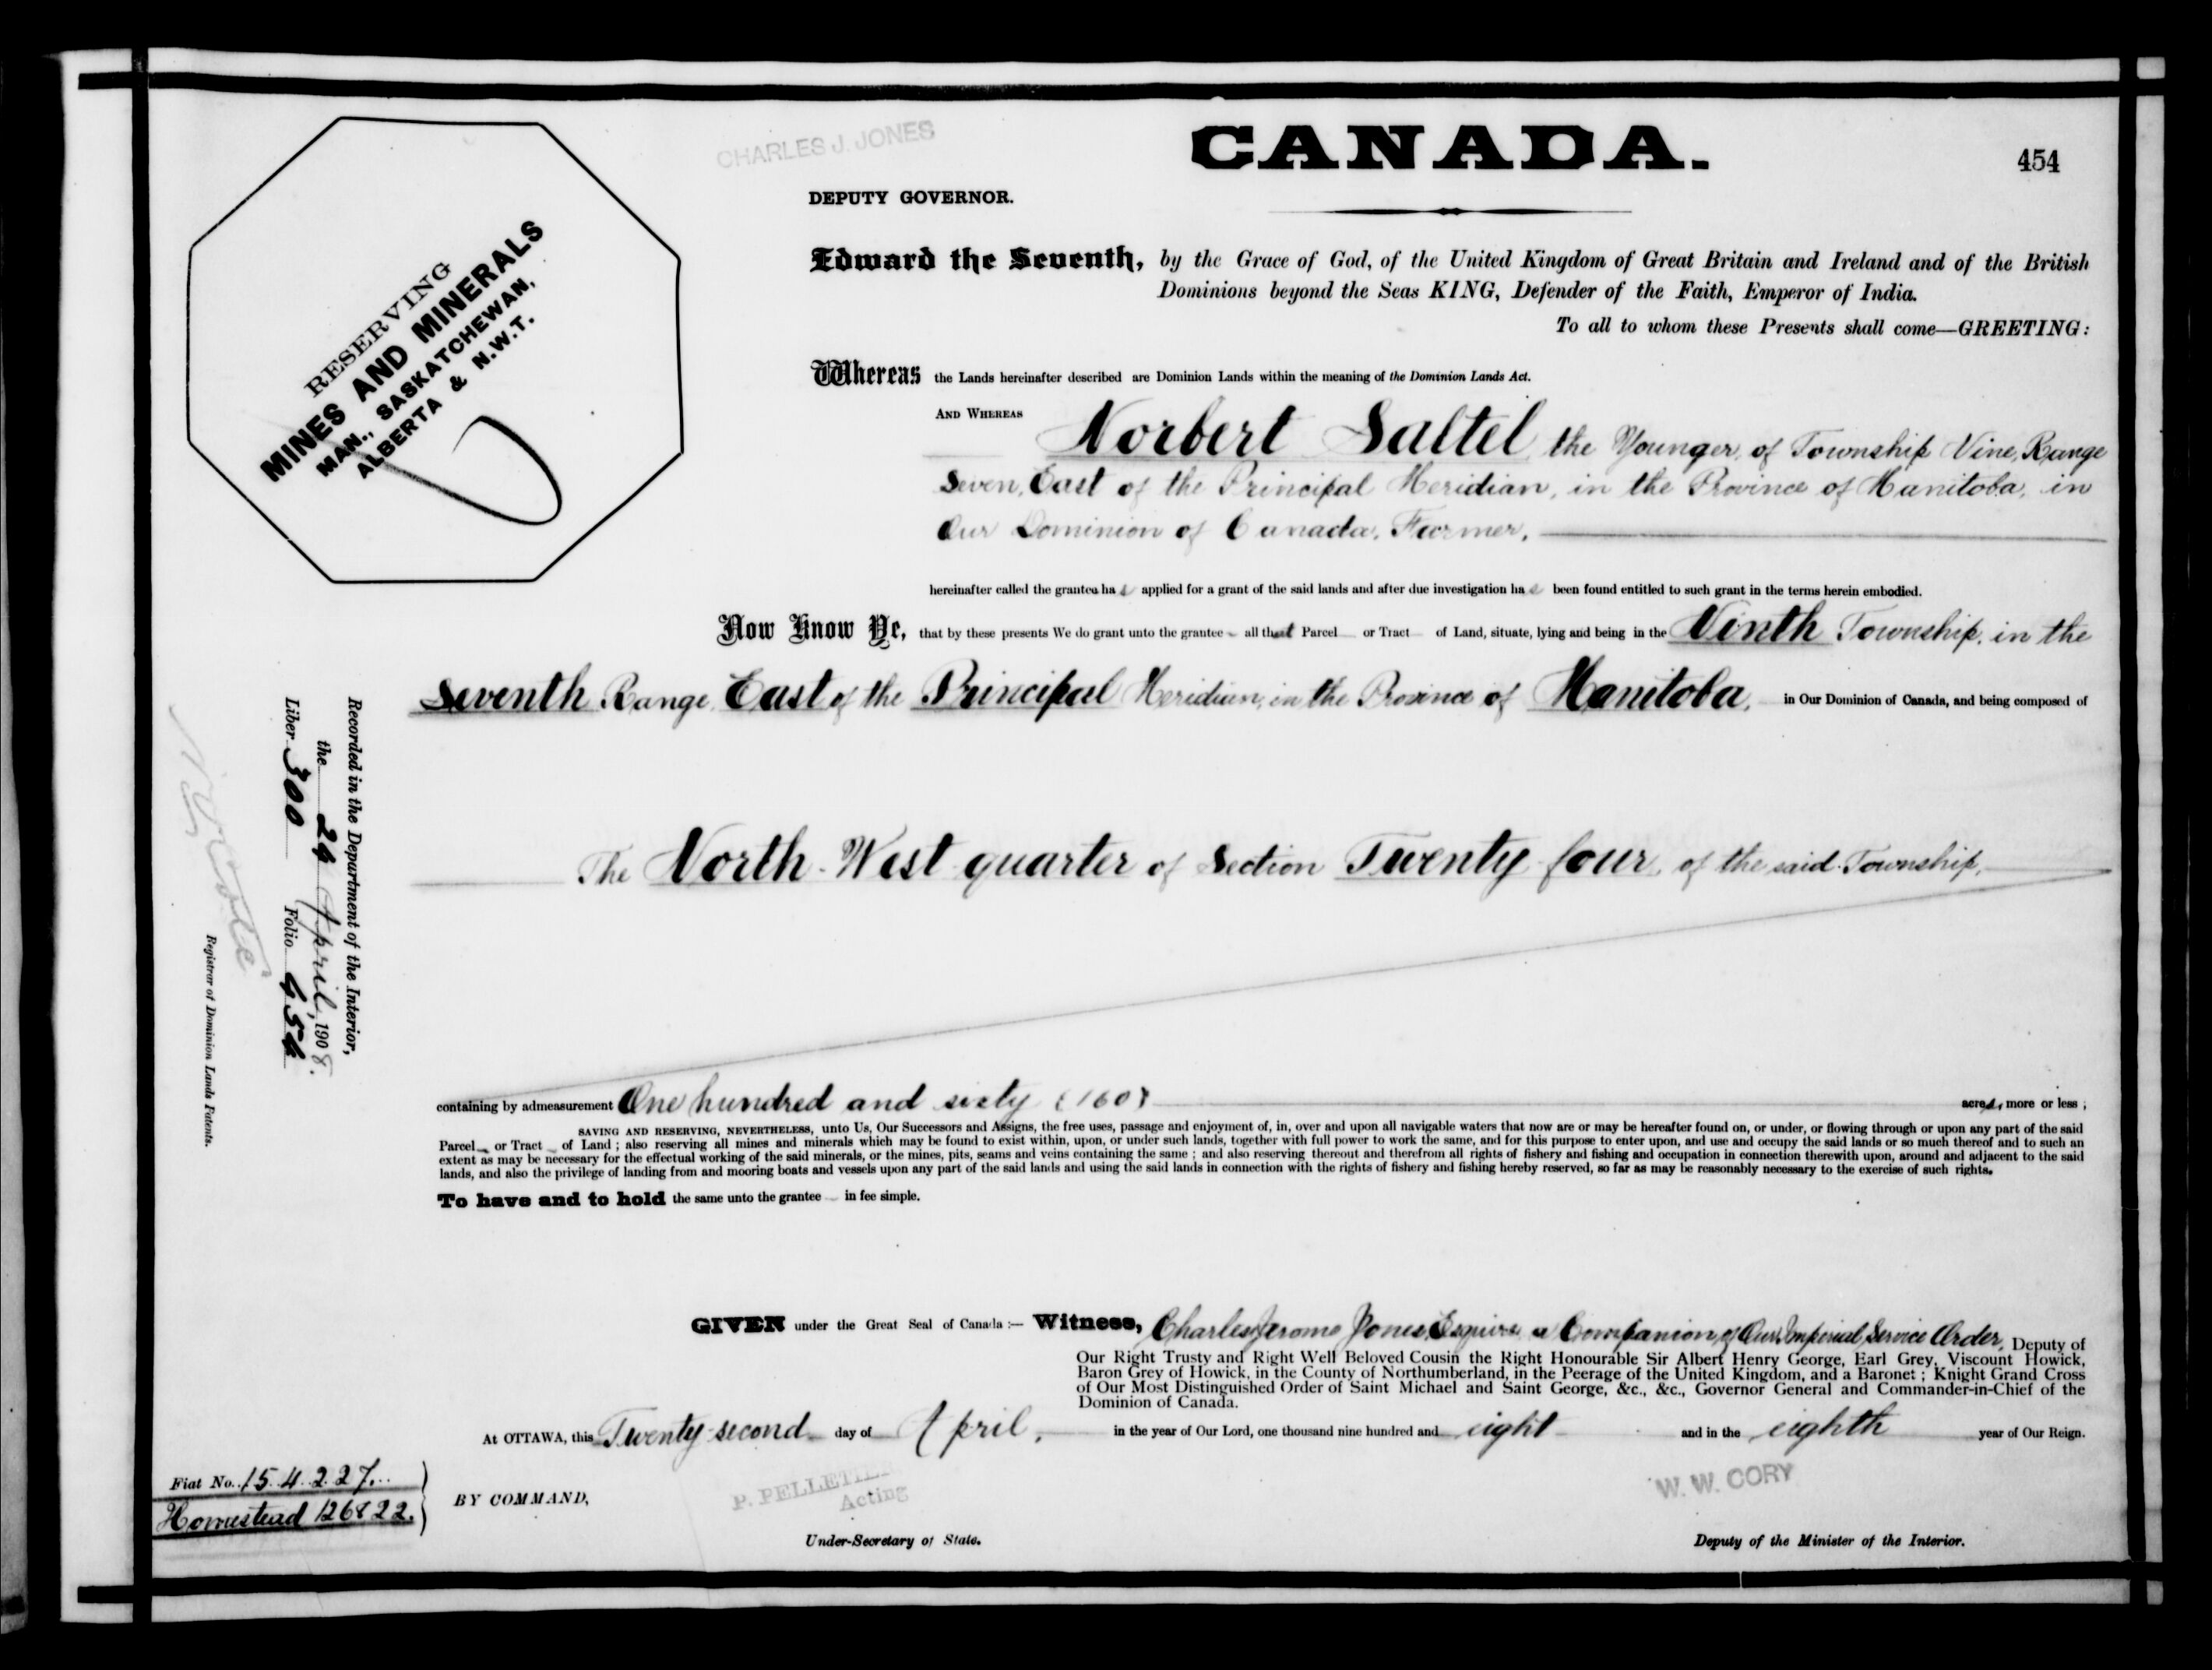 CHARLES J. JONES
CANADA.
454
DEPUTY GOVERNOR.
RESERVING
MINES AND MINERALS
MAN., SASKATCHEWAN,
ALBERTA & N.W.T.
Edward the Seventh, by the Grace of God, of the United Kingdom of Great Britain and Ireland and of the British
Dominions beyond the Seas KING, Defender of the Faith, Emperor of India.
To all to whom these Presents shall come—GREETING:
Whereas the Lands hereinafter described are Dominion Lands within the meaning of the Dominion Lands Act.
AND WHEREAS Norbert Saltel the Younger, of Township Nine, Range
Seven, East of the Principal Meridian, in the Province of Manitoba, in
Our Dominion of Canada, Farmer,
hereinafter called the grantee has applied for a grant of the said lands and after due investigation has been found entitled to such grant in the terms herein embodied.
Now Know Ye, that by these presents We do grant unto the grantee all that Parcel or Tract of Land, situate, lying and being in the Ninth Township, in the
Seventh Range, East of the Principal Meridian, in the Province of Manitoba, in Our Dominion of Canada, and being composed of
The North-West quarter of Section Twenty four, of the said Township,
containing by admeasurement One hundred and sixty (160) acres, more or less ;
SAVING AND RESERVING, NEVERTHELESS, unto Us, Our Successors and Assigns, the free uses, passage and enjoyment of, in, over and upon all navigable waters that now are or may be hereafter found on, or under, or flowing through or upon any part of the said
Parcel or Tract of Land ; also reserving all mines and minerals which may be found to exist within, upon, or under such lands, together with full power to work the same, and for this purpose to enter upon, and use and occupy the said lands or so much thereof and to such an
extent as may be necessary for the effectual working of the said minerals, or the mines, pits, seams and veins containing the same ; and also reserving thereout and therefrom all rights of fishery and fishing and occupation in connection therewith upon, around and adjacent to the said
lands, and also the privilege of landing from and mooring boats and vessels upon any part of the said lands and using the said lands in connection with the rights of fishery and fishing hereby reserved, so far as may be reasonably necessary to the exercise of such rights.
To have and to hold the same unto the grantee in fee simple.
GIVEN under the Great Seal of Canada :— Witness, Charles Jerome Jones, Esquire, a Companion of Our Imperial Service Order, Deputy of
Our Right Trusty and Right Well Beloved Cousin the Right Honourable Sir Albert Henry George, Earl Grey, Viscount Howick,
Baron Grey of Howick, in the County of Northumberland, in the Peerage of the United Kingdom, and a Baronet ; Knight Grand Cross
of Our Most Distinguished Order of Saint Michael and Saint George, &c., &c., Governor General and Commander-in-Chief of the
Dominion of Canada.
At OTTAWA, this Twenty-second day of April, in the year of Our Lord, one thousand nine hundred and eight and in the eighth year of Our Reign.
BY COMMAND,
P. PELLETIER
Acting
Under-Secretary of State.
W. W. CORY
Deputy of the Minister of the Interior.
Fiat No. 154227.
Homestead 126822.
Recorded in the Department of the Interior,
the 24 April, 1908.
Liber 300 Folio 454
N. O. Coté
Registrar of Dominion Lands Patents.